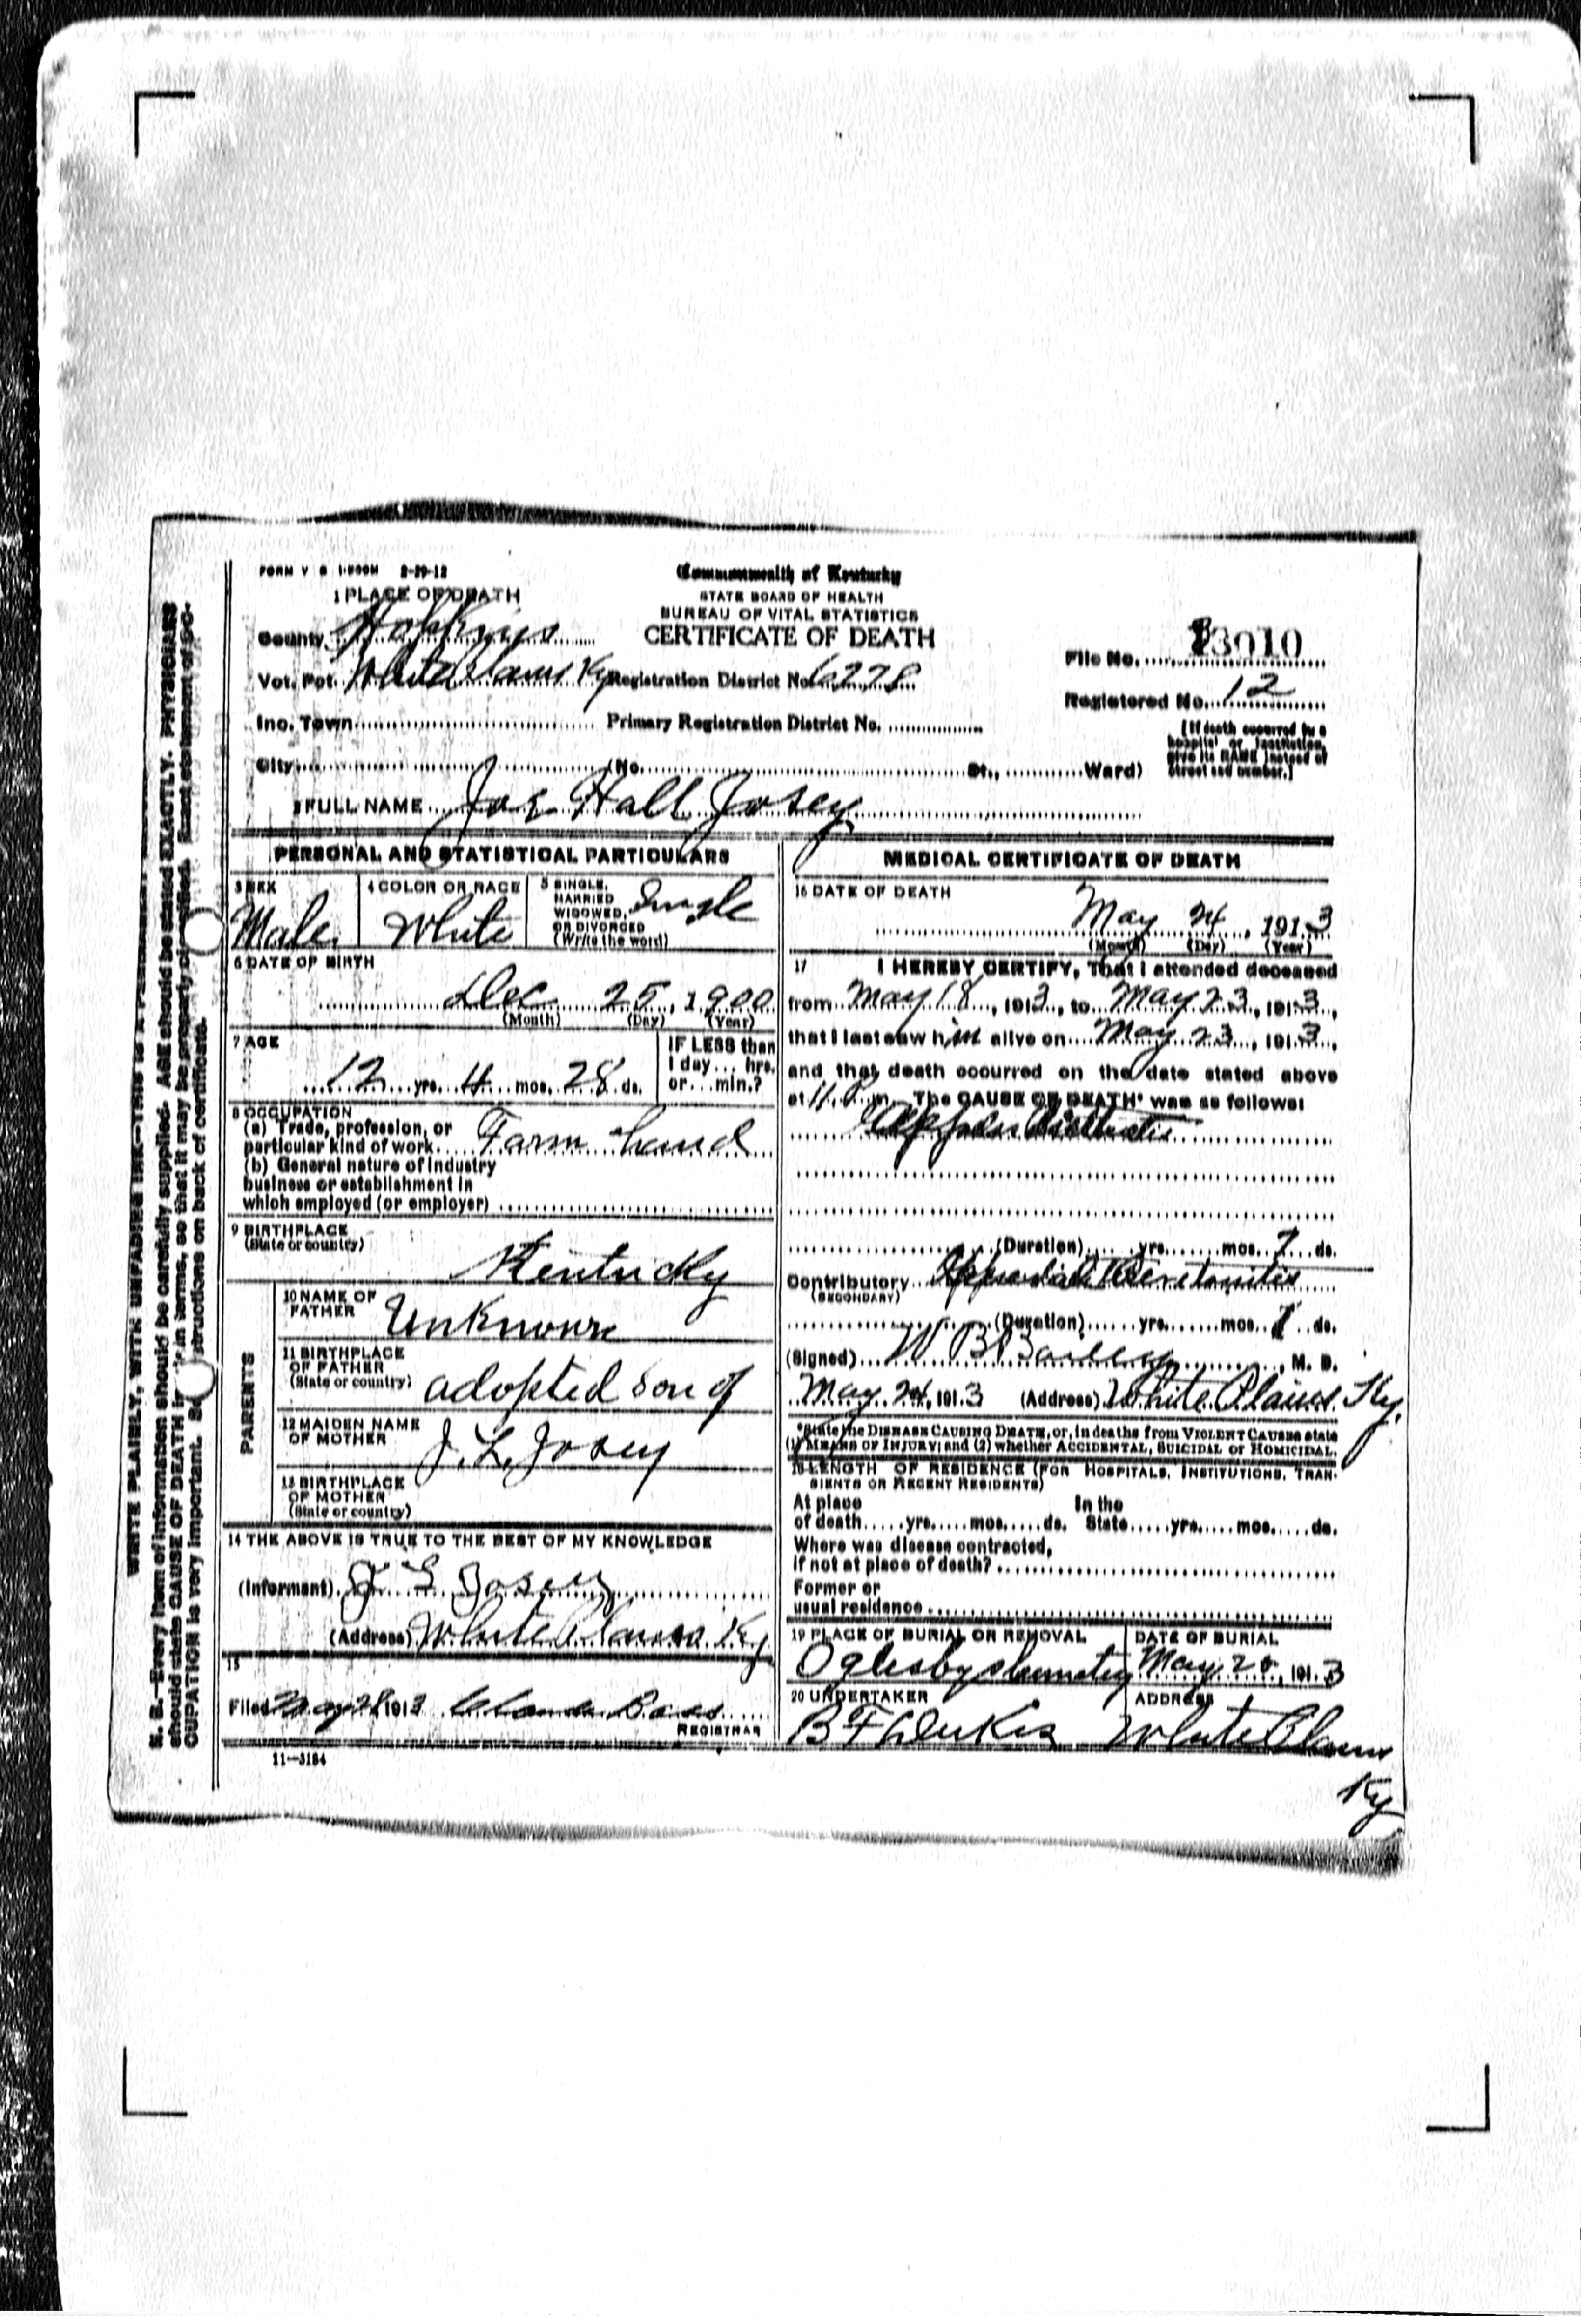 FORM V S 2-29-12
Commonwealth of Kentucky
STATE BOARD OF HEALTH
BUREAU OF VITAL STATISTICS
CERTIFICATE OF DEATH
1 PLACE OF DEATH
County Hopkins
Vot. Pct. White Plains Ky Registration District No. 6278
Inc. Town Primary Registration District No.
City (No. St., Ward)
File No. 13010
Registered No. 12
[If death occurred in a
hospital or institution,
give its NAME instead of
street and number.]
2 FULL NAME Joe Hall Josey
PERSONAL AND STATISTICAL PARTICULARS
3 SEX
Male
4 COLOR OR RACE
White
5 SINGLE,
MARRIED
WIDOWED,
OR DIVORCED
(Write the word)
Single
6 DATE OF BIRTH
Dec 25, 1900
(Month) (Day) (Year)
7 AGE
12 yrs. 4 mos. 28 ds.
IF LESS than
1 day... hrs.
or... min.?
8 OCCUPATION
(a) Trade, profession, or
particular kind of work Farm hand
(b) General nature of industry
business or establishment in
which employed (or employer)
9 BIRTHPLACE
(State or country)
Kentucky
PARENTS
10 NAME OF
FATHER
Unknown
11 BIRTHPLACE
OF FATHER
(State or country)
adopted son of
12 MAIDEN NAME
OF MOTHER
J. L. Josey
13 BIRTHPLACE
OF MOTHER
(State or country)
14 THE ABOVE IS TRUE TO THE BEST OF MY KNOWLEDGE
(Informant) J L Josey
(Address) White Plains Ky
15
Filed May 28 1913
REGISTRAR
11—3184
MEDICAL CERTIFICATE OF DEATH
16 DATE OF DEATH
May 24, 1913
(Month) (Day) (Year)
17 I HEREBY CERTIFY, That I attended deceased
from May 18, 1913, to May 23, 1913,
that I last saw him alive on May 23, 1913,
and that death occurred on the date stated above
at 11 P.m. The CAUSE OF DEATH* was as follows:
(Duration) yrs. mos. 7 ds.
Contributory Peritonitis
(SECONDARY)
(Duration) yrs. mos. 1 ds.
(Signed) W B Bailey, M. D.
May 24, 1913 (Address) White Plains Ky.
*State the DISEASE CAUSING DEATH, or, in deaths from VIOLENT CAUSES state
(1) MEANS OF INJURY; and (2) whether ACCIDENTAL, SUICIDAL or HOMICIDAL.
18 LENGTH OF RESIDENCE (FOR HOSPITALS, INSTITUTIONS, TRAN-
SIENTS OR RECENT RESIDENTS)
At place In the
of death yrs. mos. ds. State yrs. mos. ds.
Where was disease contracted,
if not at place of death?
Former or
usual residence
19 PLACE OF BURIAL OR REMOVAL
Oglesby
DATE OF BURIAL
May 25, 1913
20 UNDERTAKER
B F
ADDRESS
White Plains
Ky
N. B.—Every item of information should be carefully supplied. AGE should be stated EXACTLY. PHYSICIANS
should state CAUSE OF DEATH in terms, so that it may be properly classified. Exact statement of OC-
CUPATION is very important. instructions on back of certificate.
WRITE PLAINLY, WITH UNFADING INK—THIS IS A